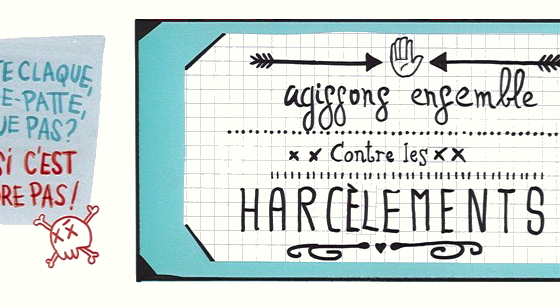 TE CLAQUE,
E-PATTE,
UE PAS?
SI C'EST
DRE PAS!
agissons ensemble
Contre les
HARCÈLEMENTS